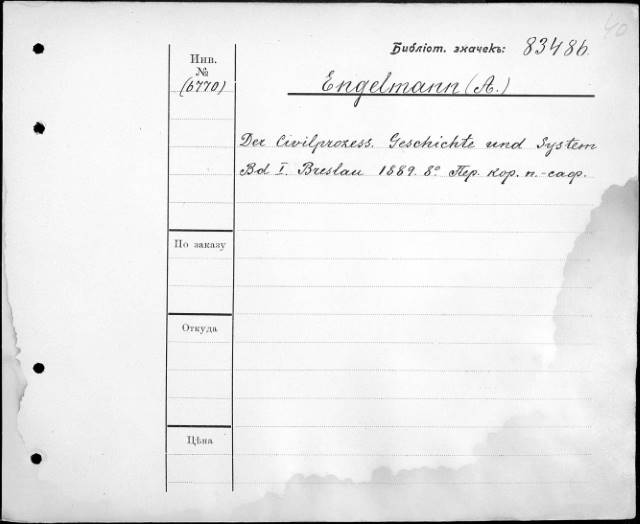 40
Библіот. значекъ: 83486.
Инв.
№
(6770)
Engelmann (A.)
Der Civilprozess. Geschichte und System
Bd I. Breslau 1889. 8° Пер. кор. п.-саф.
По заказу
Откуда
Цѣна